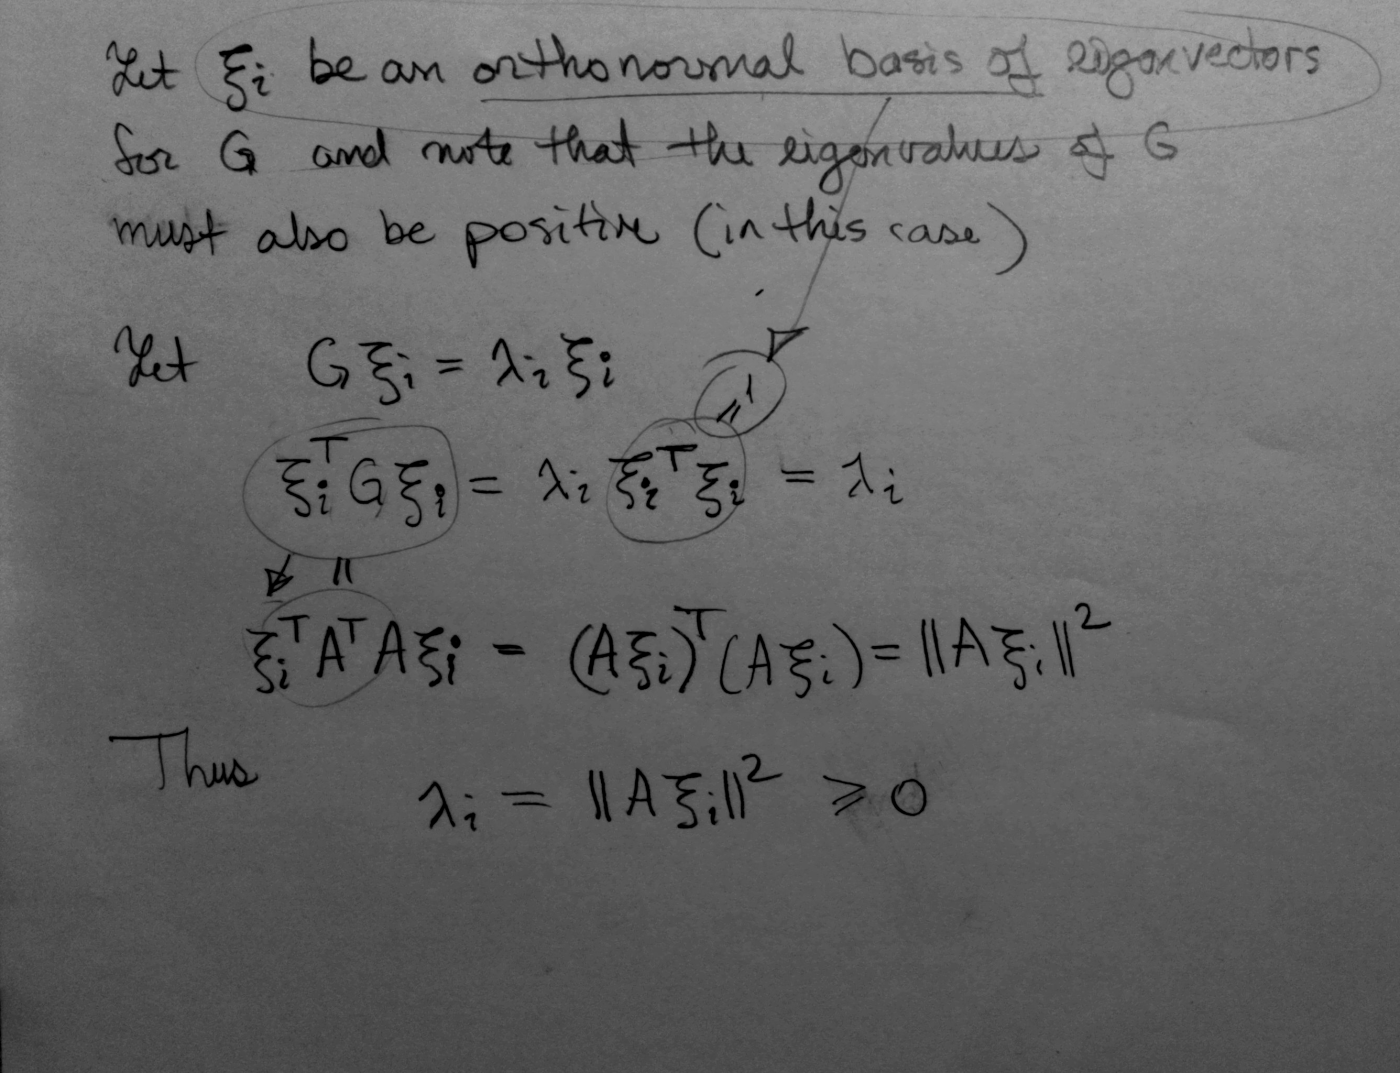 Let ξᵢ be an orthonormal basis of eigenvectors
for G and note that the eigenvalues of G
must also be positive (in this case)
Let Gξᵢ = λᵢξᵢ
= 1
ξᵢᵀGξᵢ = λᵢξᵢᵀξᵢ = λᵢ
||
ξᵢᵀAᵀAξᵢ = (Aξᵢ)ᵀ(Aξᵢ) = ||Aξᵢ||²
Thus
λᵢ = ||Aξᵢ||² ⩾ 0